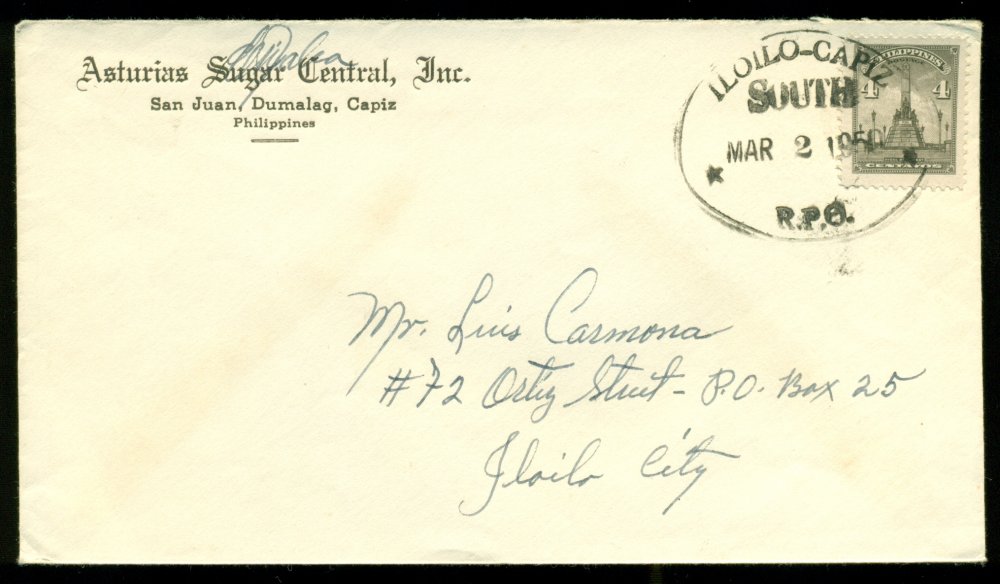 Asturias Sugar Central, Inc.
San Juan, Dumalag, Capiz
Philippines
ILOILO-CAPIZ
SOUTH
MAR 2 1950
R.P.O.
PHILIPPINES
POSTAGE
4 4
CENTAVOS
Mr. Luis Carmona
#72 Ortiz Street - P.O. Box 25
Iloilo City